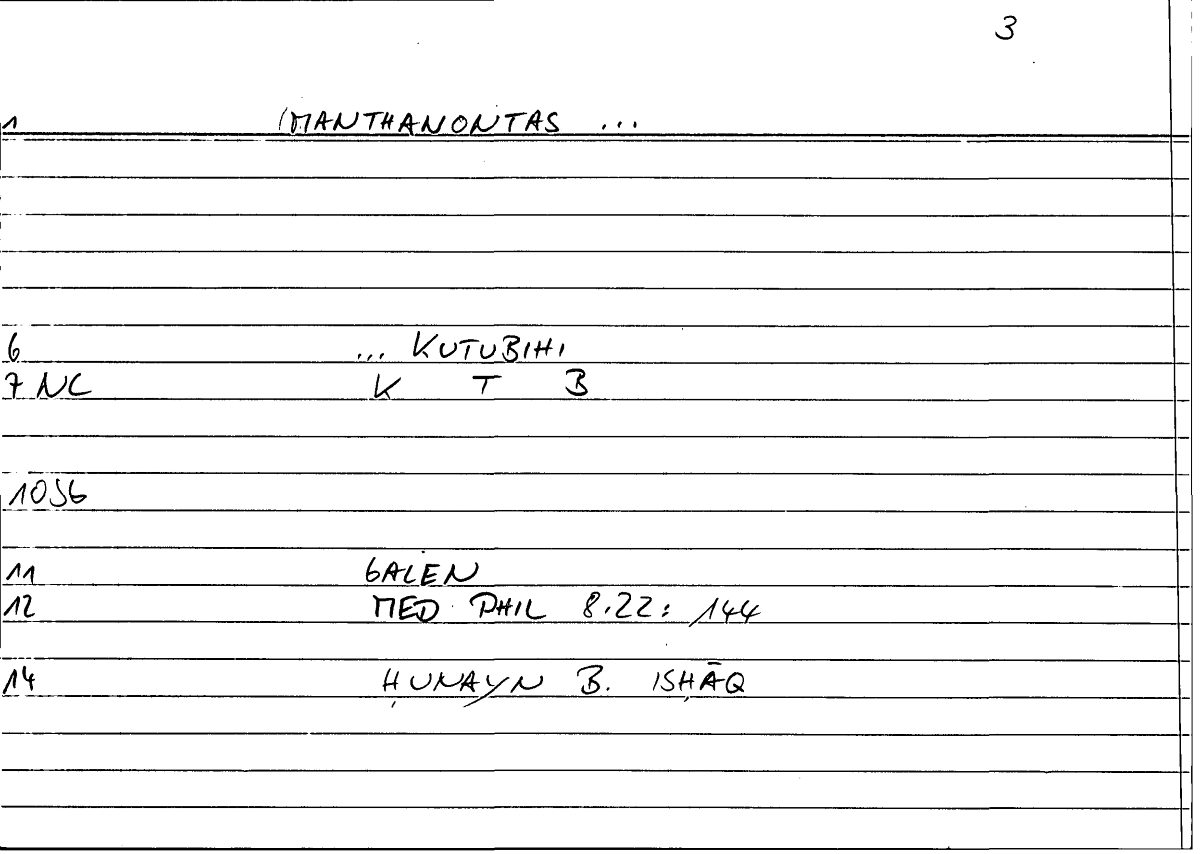 3
1 MANTHANONTAS ...
6 ... KUTUBIHI
7 NC K T B
1056
11 GALEN
12 MED PHIL 8.22: 144
14 ḤUNAYN B. ISḤĀQ